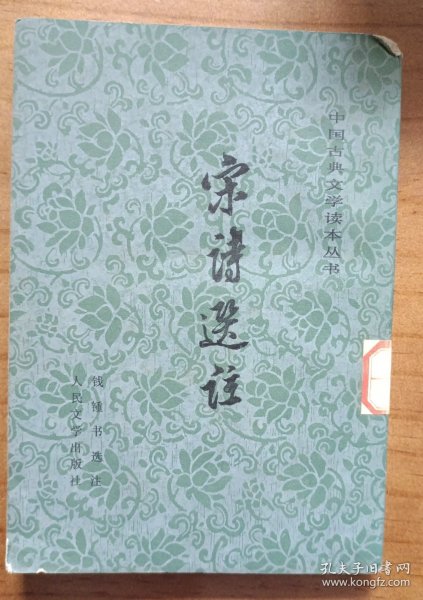 中国古典文学读本丛书
宋诗选注
钱锺书选注
人民文学出版社
孔夫子旧书网
www.kongfz.com